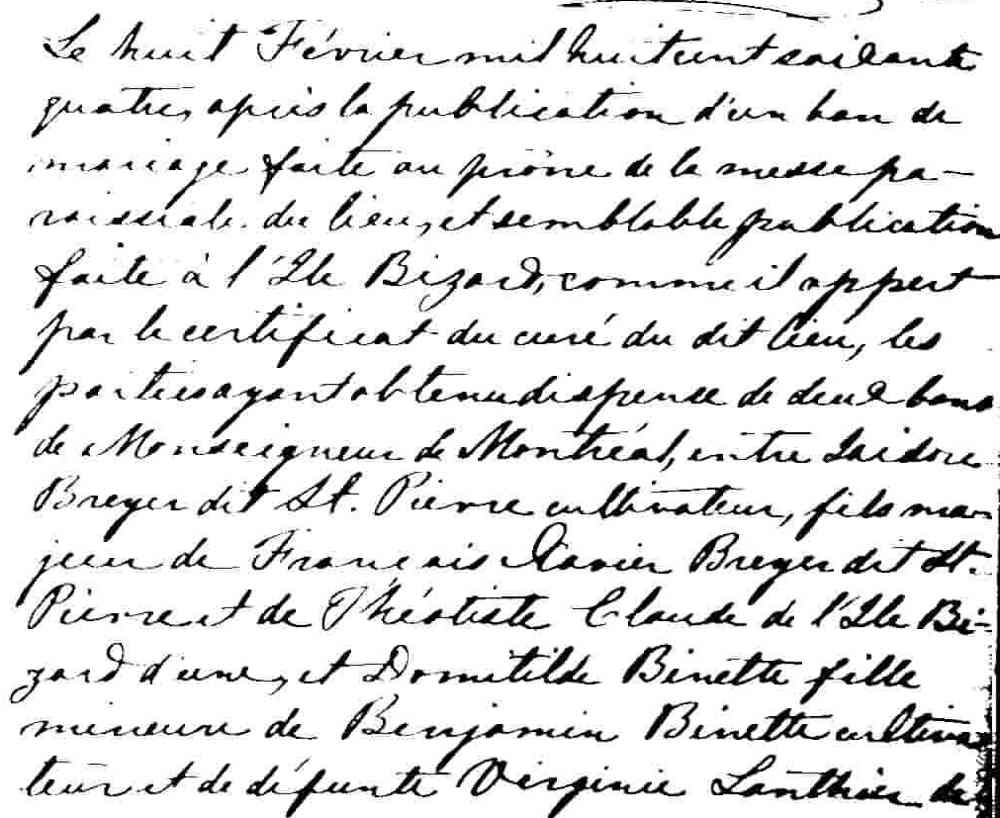 Le huit Février mil huit cent soixante
quatre, après la publication d'un ban de
mariage faite au prône de la messe pa-
roissiale du lieu, et semblable publication
faite à l'Ile Bizard, comme il appert
par le certificat du curé du dit lieu, les
parties ayant obtenu dispense de deux bans
de Monseigneur de Montréal, entre Isidore
Breyer dit St. Pierre cultivateur, fils ma-
jeur de François Xavier Breyer dit St.
Pierre et de Théotiste Claude de l'Ile Bi-
zard d'une, et Domitilde Binette fille
mineure de Benjamin Binette cultiva
teur et de défunte Virginie Lanthier de